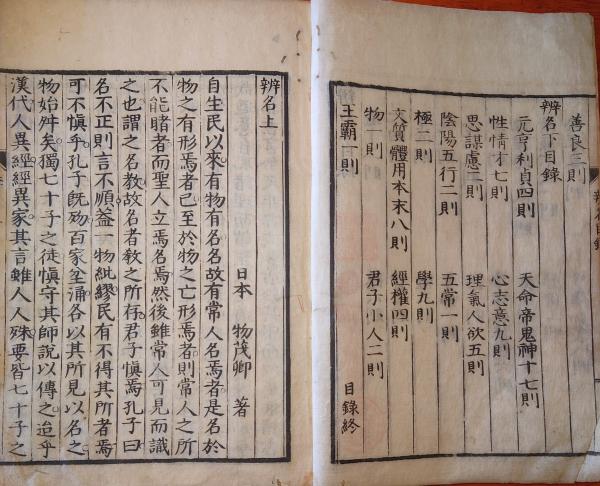 辨名目錄
善良三則
辨名下目錄
元亨利貞四則　天命帝鬼神十七則
性情才七則　心志意九則
思謀慮二則　理氣人欲五則
陰陽五行二則　五常一則
極二則　學九則
文質體用本末八則　經權四則
物一則　君子小人二則
王霸一則　目錄終
辨名上
日本　物茂卿　著
自生民以來有物有名名故有常人名焉者是名於
物之有形焉者已至於物之亡形焉者則常人之所
不能睹者而聖人立焉名焉然後雖常人可見而識
之也謂之名教故名者教之所存君子慎焉孔子曰
名不正則言不順蓋一物紕繆民有不得其所者焉
可不慎乎孔子既歾百家坌涌各以其所見以名之
物始舛矣獨七十子之徒慎守其師說以傳之迨乎
漢代人異經經異家其言雖人人殊要皆七十子之